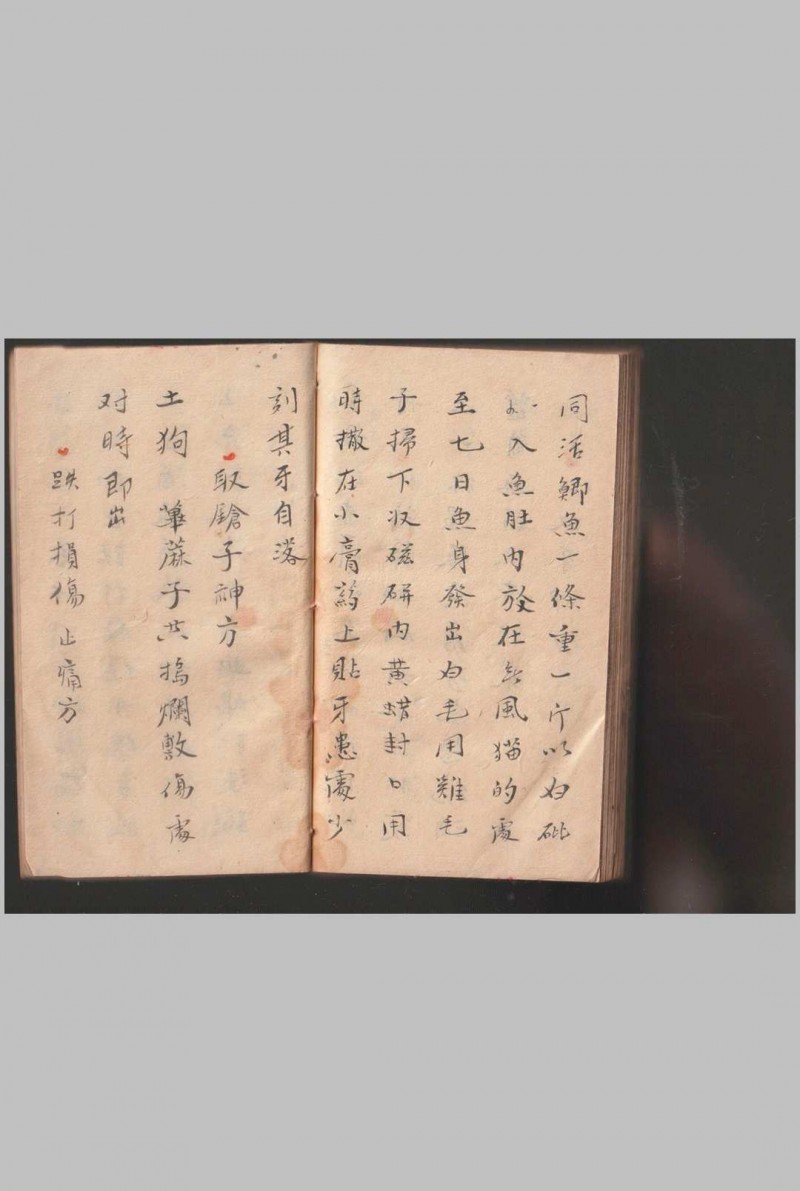 同活鯽魚一條重一斤以白砒
入魚肚内放在無風猫的處
至七日魚身發出白毛用雞毛
子掃下收磁硑内黄蜡封口用
時撒在小膏葯上貼牙患處少
刻其牙自落
取鎗子神方
土狗蓖蔴子共搗爛敷傷處
对時即出
跌打損傷止痛方